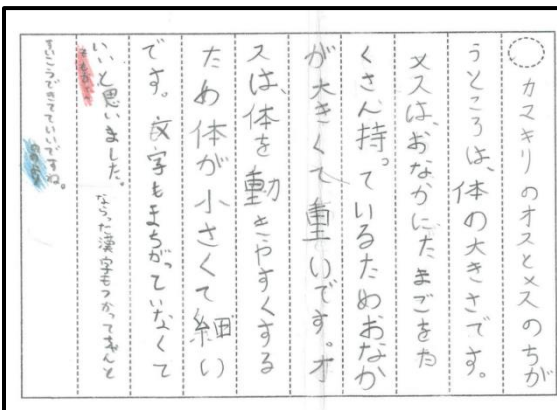 カマキリのオスとメスのちが
うところは、体の大きさです。
メスは、おなかにたまごをた
くさん持っているためおなか
が大きくて重いです。オ
スは、体を動きやすくする
ため体が小さくて細い
です。文字もまちがっていなくて
いいと思いました。
ならった漢字もつかってちゃんと
すいこうできてていいですね。